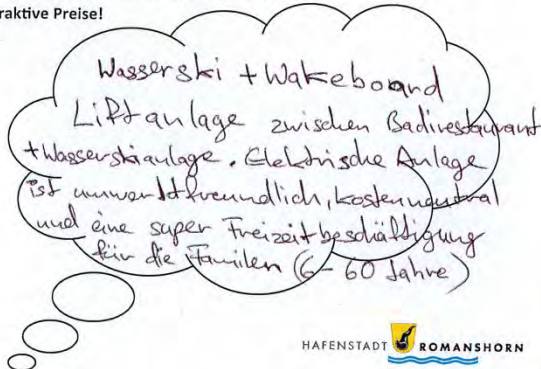 raktive Preise!
Wasserski + Wakeboard
Liftanlage zwischen Badirestaurant
+ Wasserskianlage. Elektrische Anlage
ist umweltfreundlich, kostenneutral
und eine super Freizeitbeschäftigung
für die Familen (6-60 Jahre)
HAFENSTADT ROMANSHORN